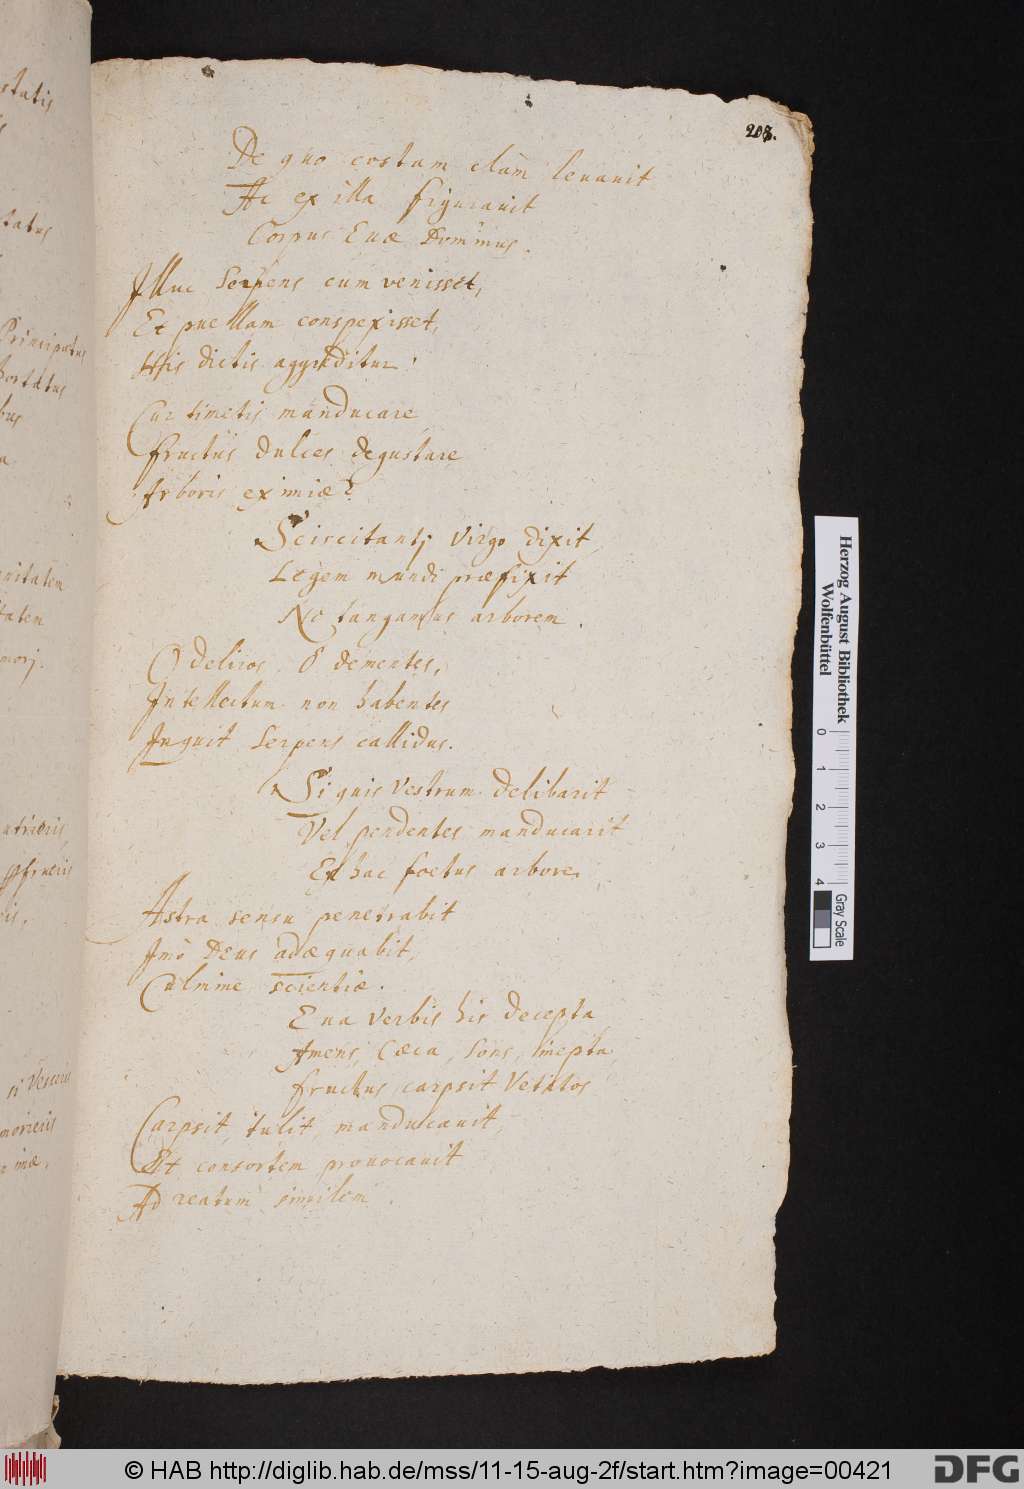 208.
De quo costam clàm leuauit
Ac ex illa figurauit
Corpus Euæ Dominus.
Illuc Serpens cum venisset,
Et puellam conspexisset,
His dictis aggreditur:
Cur timetis manducare
fructus dulces degustare
Arboris eximiæ?
Scircitantj Virgo dixit,
Legem mundi præfixit
Ne tangamus arborem.
O deliros, ô dementes,
Intellectum non habentes
Inquit Serpens callidus.
Si quis Vestrum delibarit
Vel pendentes manducarit
Ex hac foetus arbore,
Astra sensu penetrabit
Imò Deus adæquabit,
Culmine scientiæ.
Eua Verbis his decepta
Amens, Cæca, Sons, inepta,
fructus carpsit Vetitos
Carpsit, tulit, manducauit,
Et consortem prouocauit
Ad reatum similem.
statis
tatus
Principatus
portatus
bus
a
nitatem
tatem
morj.
is.
si Vesceris
morieris
Herzog August Bibliothek
Wolfenbüttel
0 1 2 3 4
Gray Scale
© HAB http://diglib.hab.de/mss/11-15-aug-2f/start.htm?image=00421
DFG